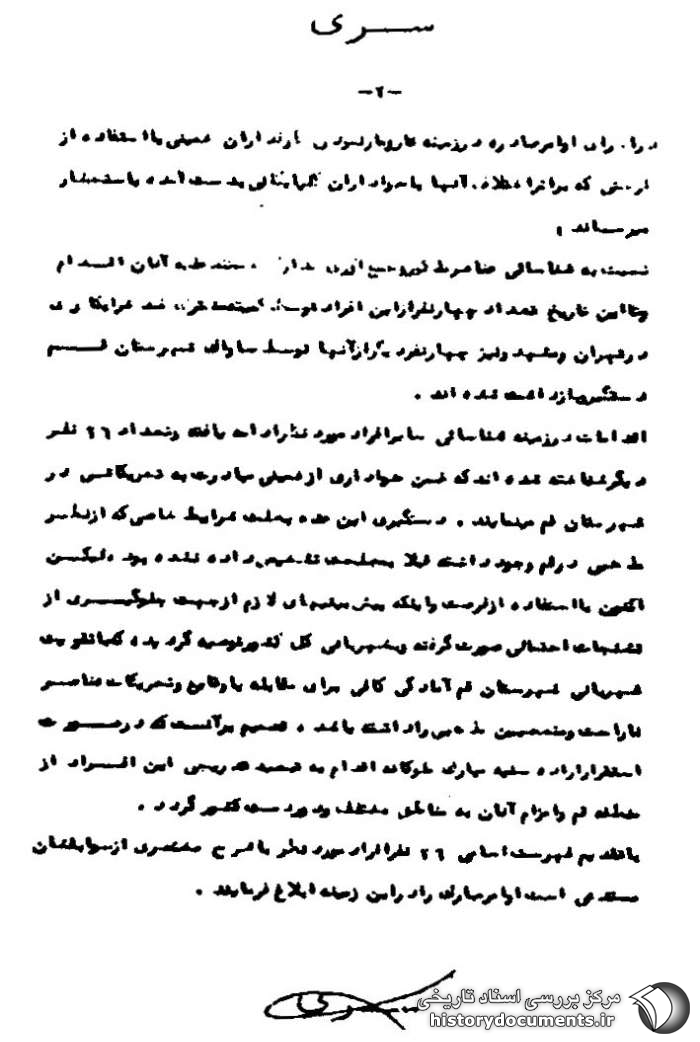 سری
-۲-
اوامر صادره در زمینه خمینی با استفاده از
که آنها با هواداران بدست آمده باستحضار
میرساند
نسبت به شناسائی عناصر علیه آنان اقدام
وتااین تاریخ تعداد چهارنفرازاین افراد توسط کمیته مشترک ضد خرابکاری
درتهران ومشهد ونیز چهارنفردیگرازآنها توسط ساواک شهرستان قم
دستگیروبازداشت شده اند .
اقدامات درزمینه شناسائی سایرافراد مورد نظرادامه یافته وتعداد ۲۶ نفر
دیگرشناخته شده اند که ضمن هواداری ازخمینی مبادرت به تحریکاتی در
شهرستان قم مینمایند . دستگیری این عده بعلت شرایط خاصی که ازنظر
مذهبی درقم وجود داشته قبلا بمصلحت تشخیص داده نشده بود ولیکن
اکنون بااستفاده ازفرصت واینکه پیش بینیهای لازم ازجهت جلوگیری از
تشنجات احتمالی صورت گرفته وبشهربانی کل کشورتوصیه گردیده که با تقویت
شهربانی شهرستان قم آمادگی کافی برای مقابله با وقایع وتحریکات عناصر
ناراحت ومتعصبین مذهبی راداشته باشد ، تصمیم برآنست که درصورت
استقراراراده سنیه مبارک ملوکانه اقدام به تبعید تدریجی این افراد از
منطقه قم واعزام آنان به مناطق مختلف ودوردست کشور گردد .
باتقدیم فهرست اسامی ۲۶ نفرافراد مورد نظر باشرح مختصری ازسوابقشان
مستدعی است اوامرمبارک رادراین زمینه ابلاغ فرمایند .
مرکز بررسی اسناد تاریخی
historydocuments.ir